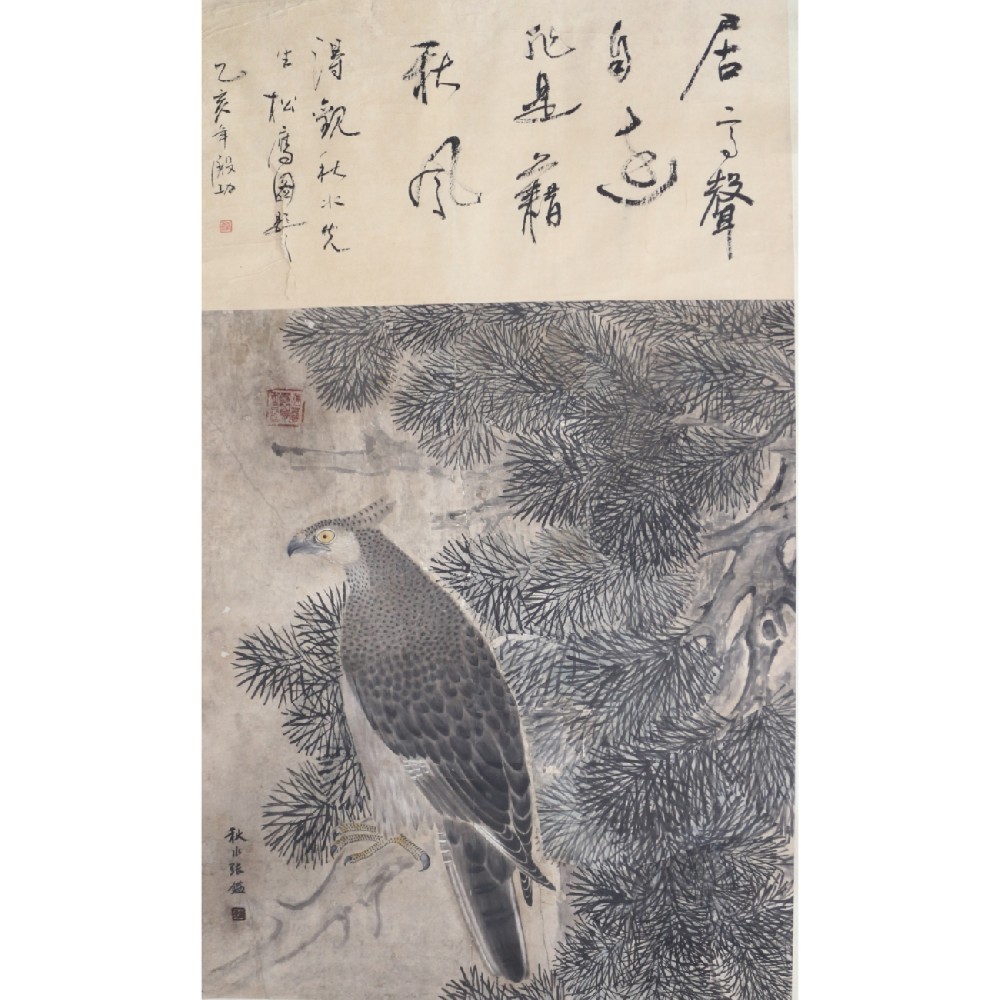 居高聲
自遠
非是藉
秋風
得觀秋水先
生松鷹圖題
乙亥年殿功
秋水張鎰